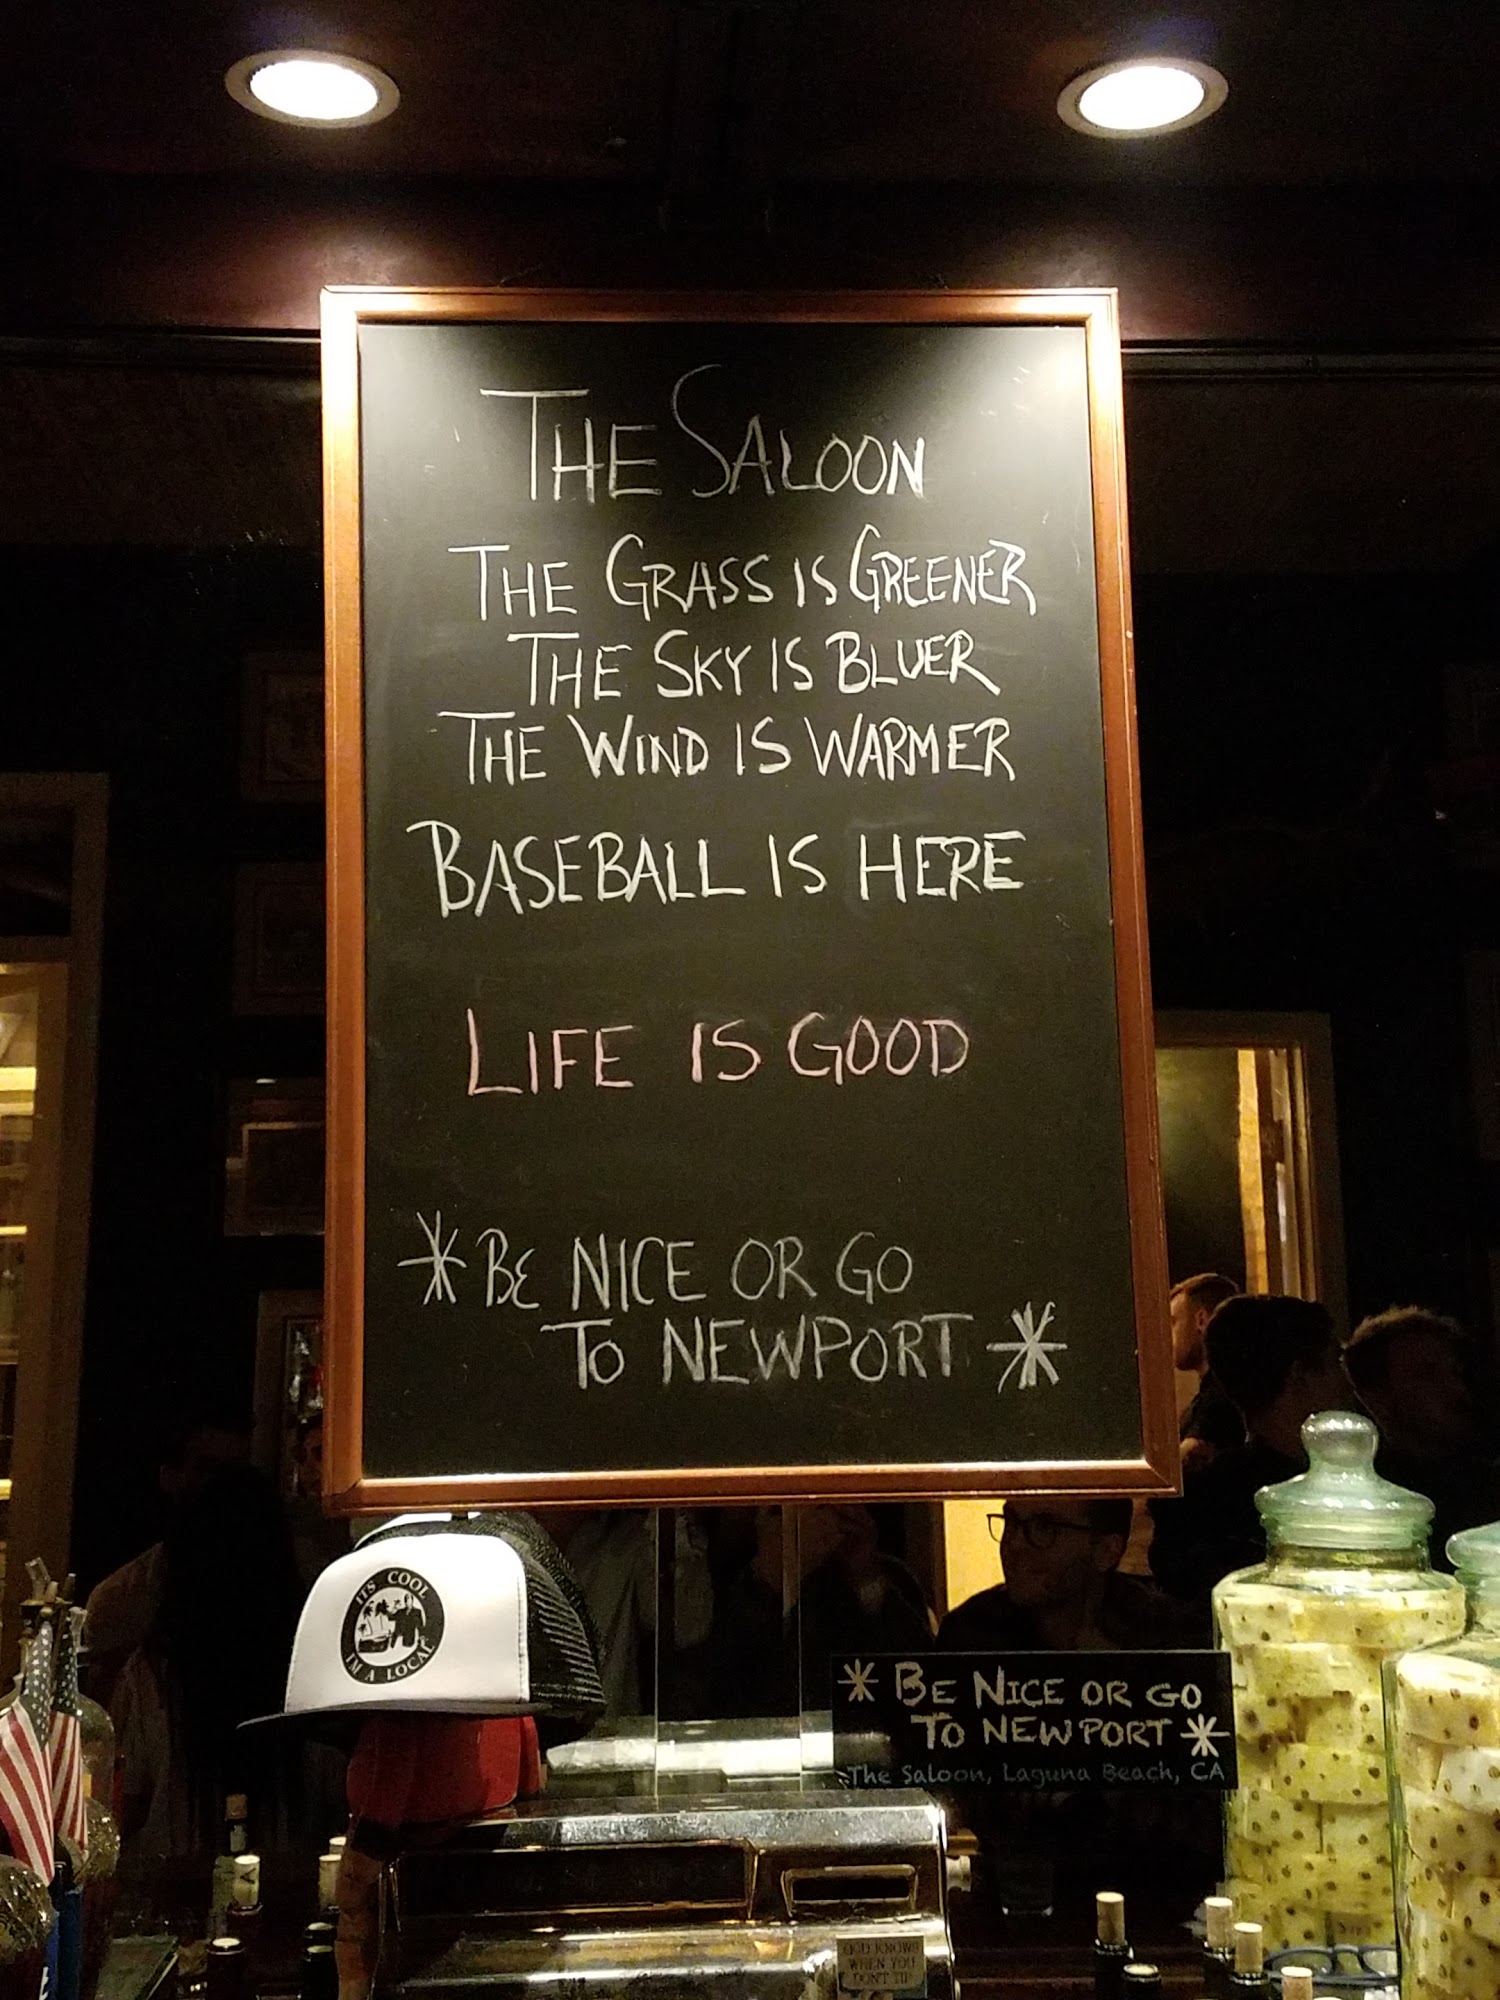 THE SALOON
THE GRASS IS GREENER
THE SKY IS BLUER
THE WIND IS WARMER
BASEBALL IS HERE
LIFE IS GOOD
*BE NICE OR GO
TO NEWPORT*
ITS COOL
IM A LOCAL
*BE NICE OR GO
TO NEWPORT*
The Saloon, Laguna Beach, CA
GOD KNOWS
WHEN YOU
DON'T TIP